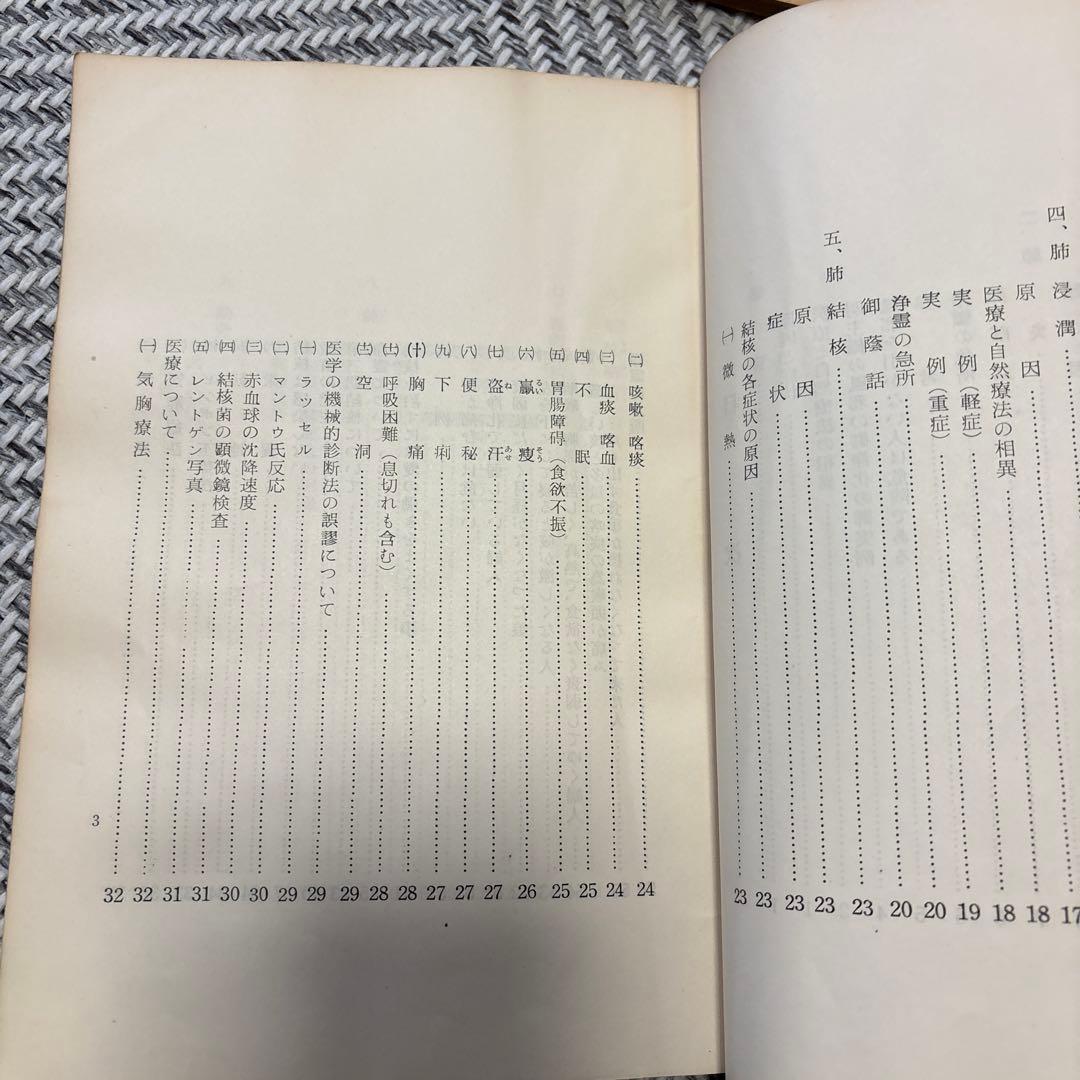 四、肺浸潤……17
原因……18
医療と自然療法の相異……18
実例（軽症）……19
実例（重症）……20
浄霊の急所……20
御蔭話……23
五、肺結核……23
原因……23
症状……23
結核の各症状の原因……23
㈠ 微熱……
㈡ 咳嗽 喀痰……24
㈢ 血痰 喀血……24
㈣ 不眠……25
㈤ 胃腸障碍（食欲不振）……25
㈥ 羸痩 るいそう……26
㈦ 盗汗 ねあせ……27
㈧ 便秘……27
㈨ 下痢……27
㈩ 胸痛……28
(十一) 呼吸困難（息切れも含む）……28
(十二) 空洞……29
医学の機械的診断法の誤謬について……29
㈠ ラッセル……29
㈡ マントウ氏反応……30
㈢ 赤血球の沈降速度……30
㈣ 結核菌の顕微鏡検査……31
㈤ レントゲン写真……31
医療について……32
㈠ 気胸療法……32
3